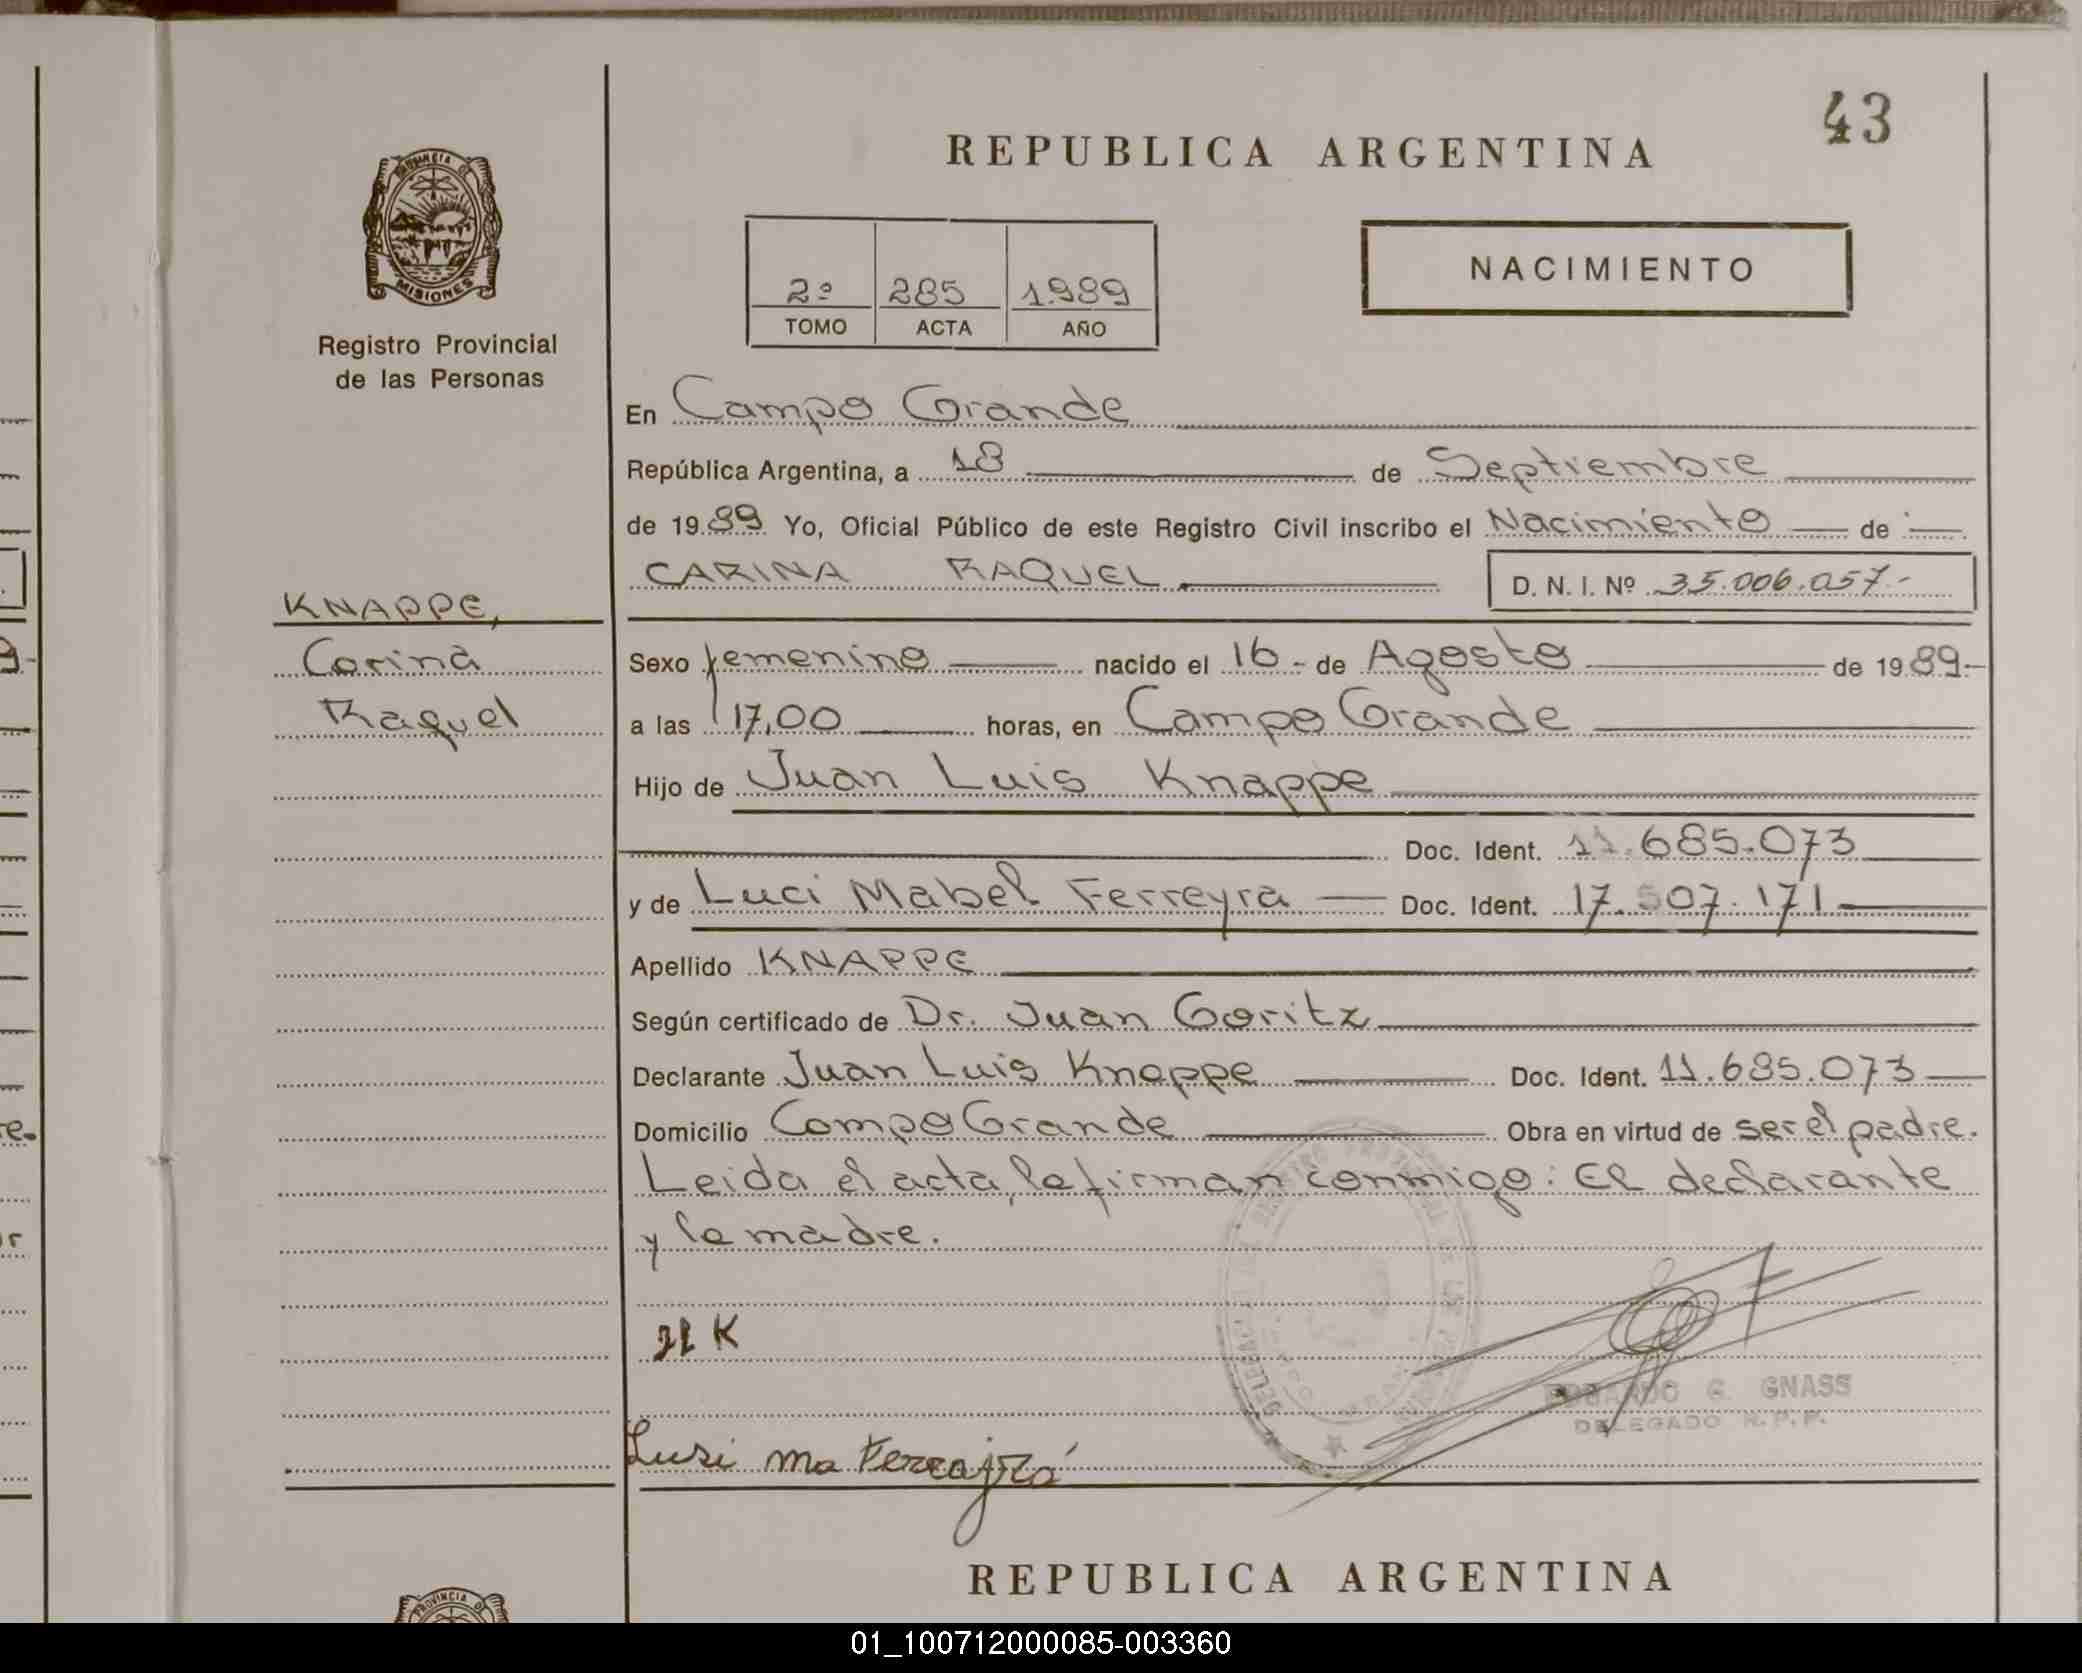 43
REPUBLICA ARGENTINA
PROVINCIA DE
MISIONES
Registro Provincial
de las Personas
2º 285 1989
TOMO ACTA AÑO
NACIMIENTO
En Campo Grande
República Argentina, a 18 de Septiembre
de 1989 Yo, Oficial Público de este Registro Civil inscribo el Nacimiento de
CARINA RAQUEL D. N. I. Nº 35.006.057.-
KNAPPE,
Carina
Raquel
Sexo femenino nacido el 16 - de Agosto de 1989-
a las 17,00 horas, en Campo Grande
Hijo de Juan Luis Knappe
Doc. Ident. 11.685.073
y de Luci Mabel Ferreyra Doc. Ident. 17.507.171
Apellido KNAPPE
Según certificado de Dr. Juan Goritz
Declarante Juan Luis Knappe Doc. Ident. 11.685.073
Domicilio Campo Grande Obra en virtud de ser el padre.
Leida el acta, la firman conmigo: El declarante
y la madre.
JL K
EDGARDO G. GNASS
DELEGADO R.P.P.
Lusi ma Ferrajra
REPUBLICA ARGENTINA
PROVINCIA DE
01_100712000085-003360